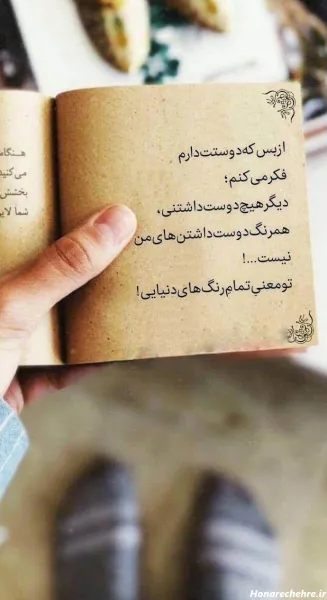 از بس که دوستت دارم
فکر می کنم؛
دیگر هیچ دوست داشتنی،
همرنگ دوست داشتن های من
نیست...!
تو معنیِ تمامِ رنگ های دنیایی!
هنگام
می کنید
بخشش
شما لایق
Honarechehre.ir